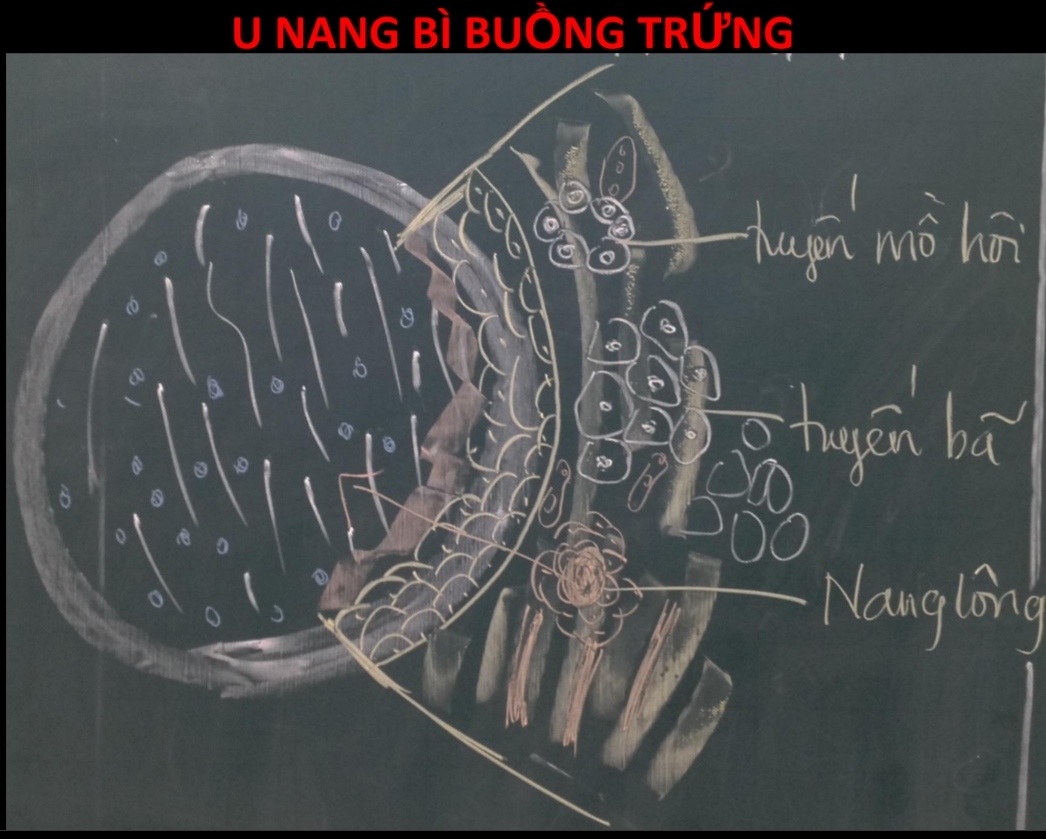 U NANG BÌ BUỒNG TRỨNG
tuyến mồ hôi
tuyến bã
Nang lông